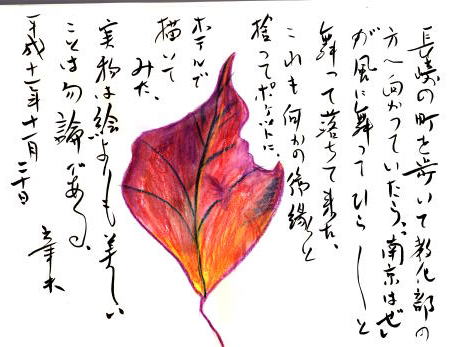 長崎の町を歩いて教化部の
方へ向かっていたら、"南京はぜ"
が風に舞ってひら〳〵と
舞って落ちて来た。
これも何かの御縁と
拾ってポケットに、
ホテルで
描いて
みた。
実物は絵よりも美しい
ことは勿論である。
平成十一年十一月二十日